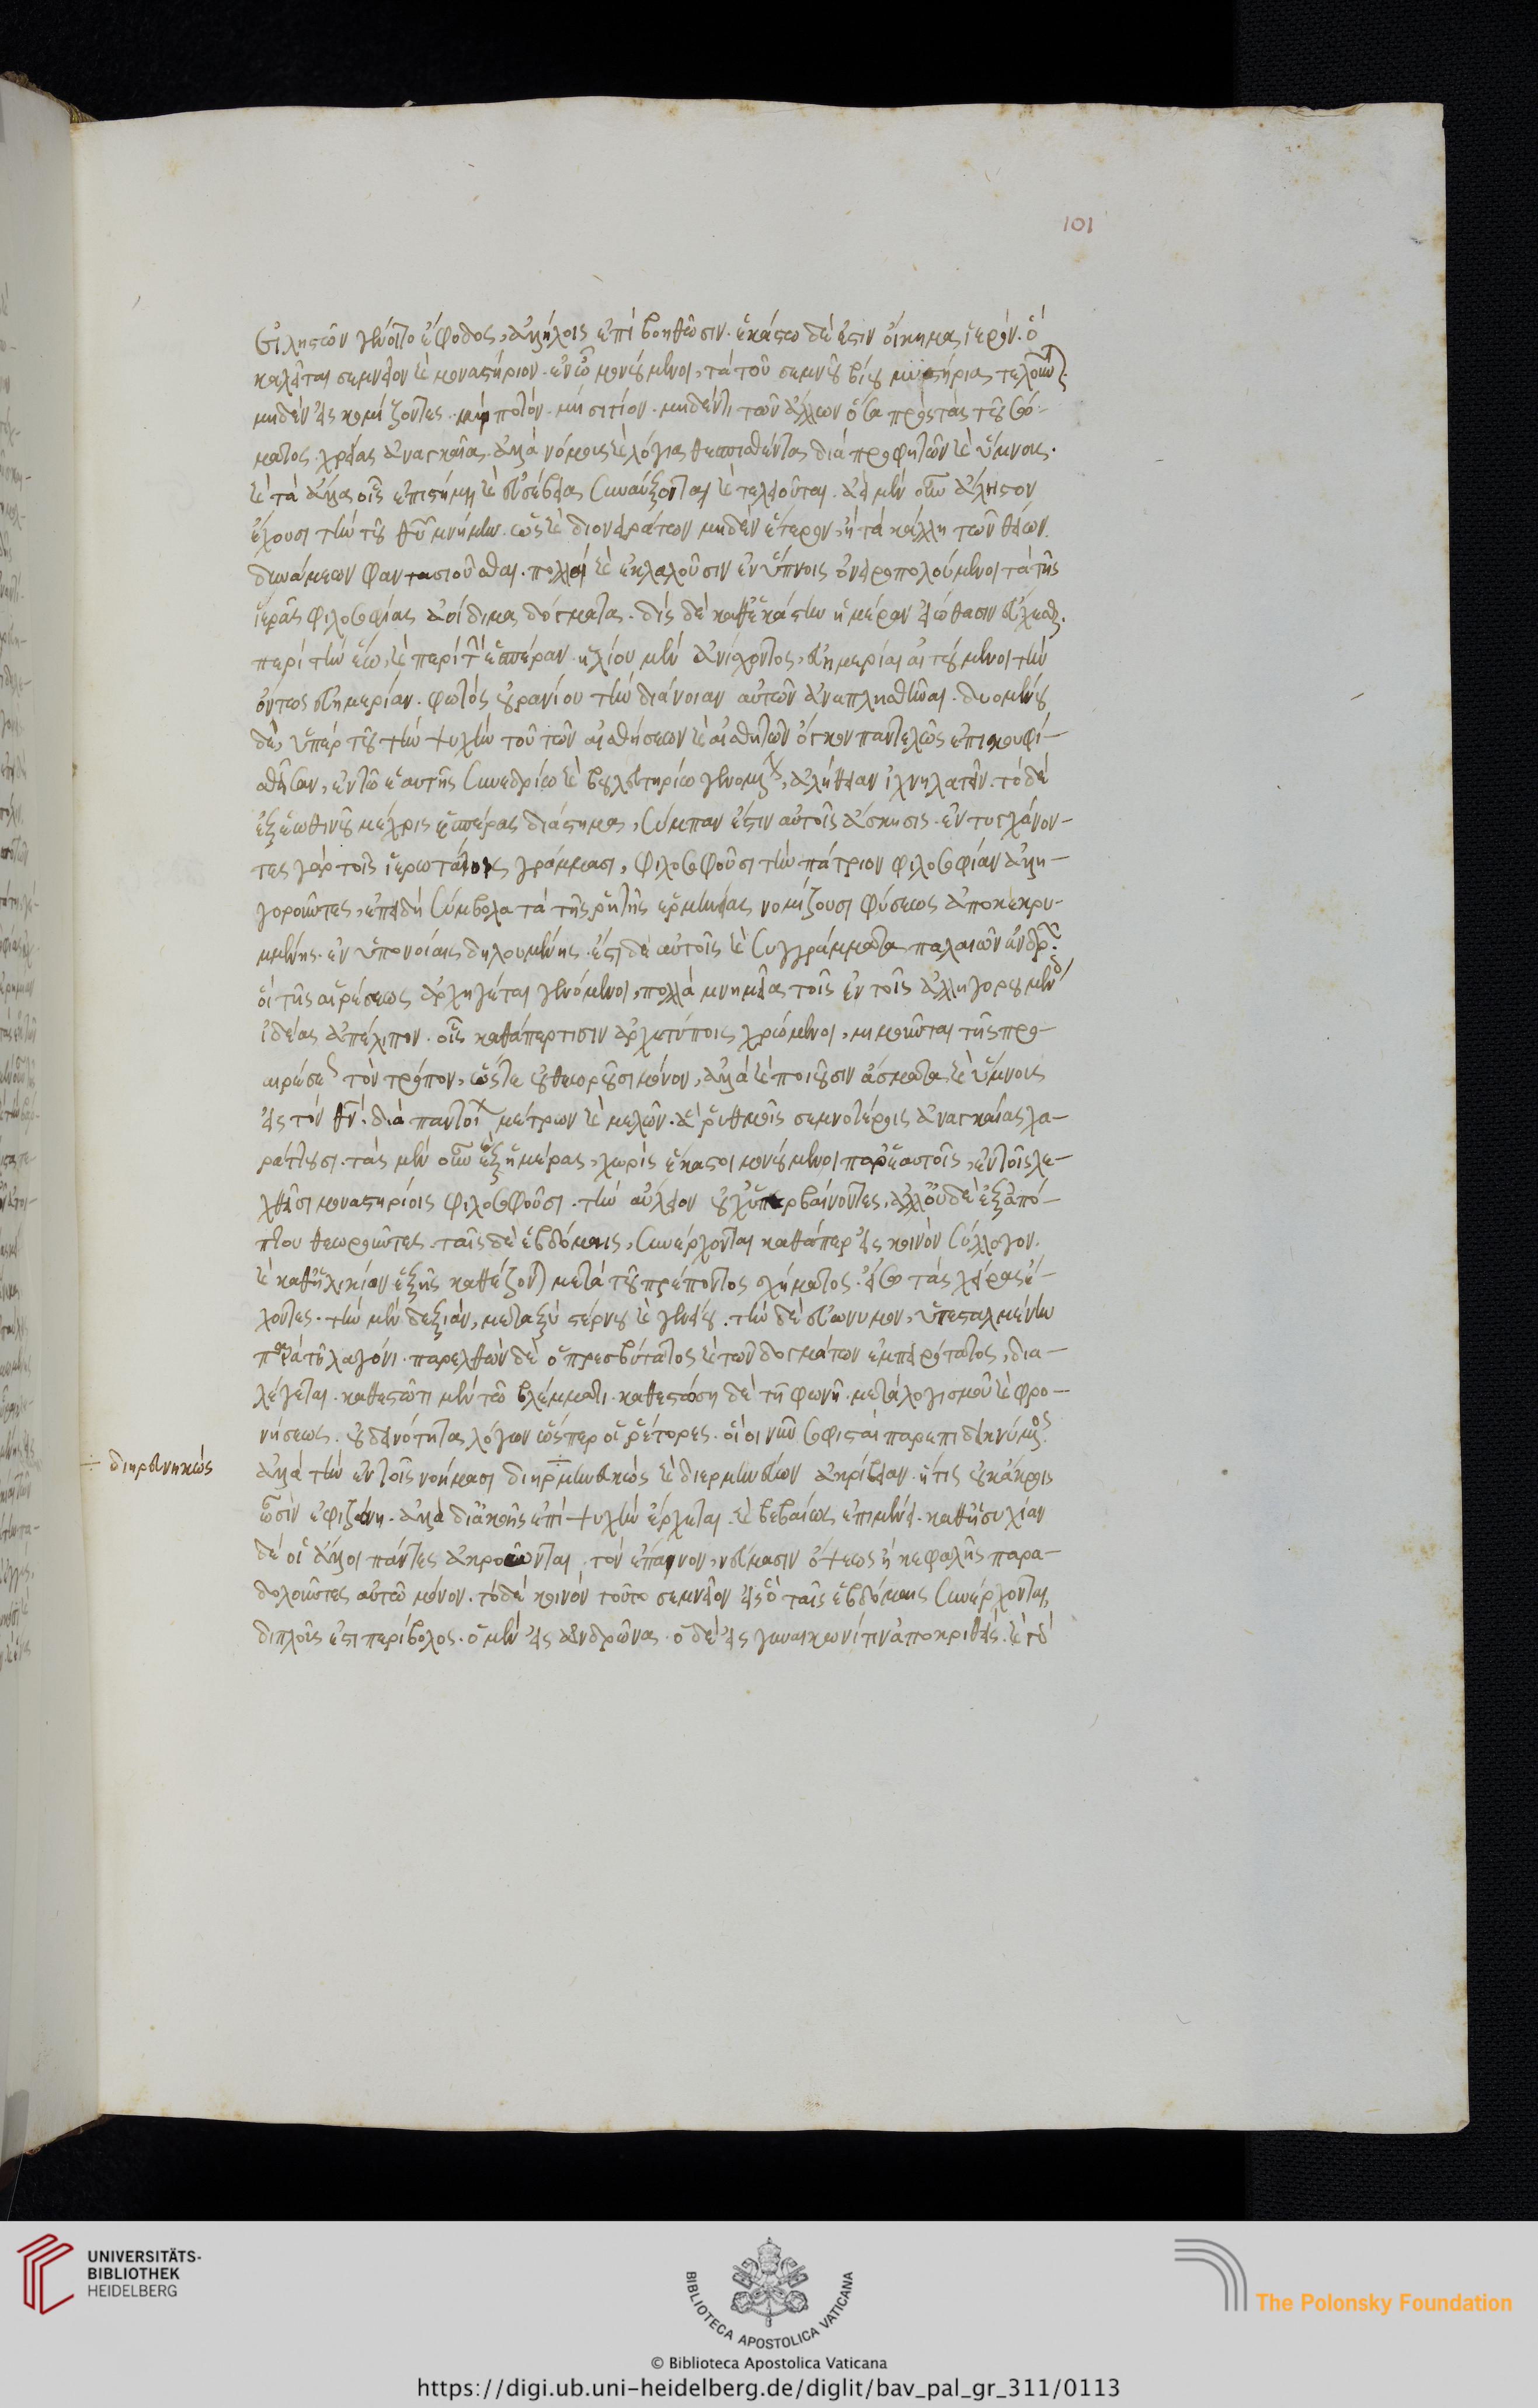 101
εἰ ληστῶν γένοιτο ἔφοδος, ἀλλήλοις ἐπὶ βοηθῶσιν. ἑκάστω δέ ἐστιν οἴκημα ἱερόν. ὃ
καλεῖται σεμνεῖον καὶ μοναστήριον. ἐν ᾧ μονούμενοι, τὰ τοῦ σεμνοῦ βίου μυστήρια τελοῦντ
μηδὲν εἰσκομίζοντες. μὴ ποτόν. μὴ σιτίον. μηδέν τι τῶν ἄλλων ὅσα πρὸς τὰς τοῦ σώ-
ματος χρείας ἀναγκαῖα. ἀλλὰ νόμους καὶ λόγια θεσπισθέντα διὰ προφητῶν καὶ ὕμνοις.
καὶ τὰ ἄλλα οἷς ἐπιστήμη καὶ εὐσέβεια συναύξονται καὶ τελειοῦται. ἀεὶ μὲν οὖν ἄληστον
ἔχουσι τὴν τοῦ θυ μνήμην. ὡς καὶ δι ὀνειράτων μηδὲν ἕτερον, ἢ τὰ κάλλη τῶν θείων
δυνάμεων φαντασιοῦσθαι. πολλοὶ καὶ ἐκλαλοῦσιν ἐν ὕπνοις ὀνειροπολούμενοι τὰ τῆς
ἱερᾶς φιλοσοφίας ἀοίδιμα δόγματα. δὶς δὲ καθ' ἑκάστην ἡμέραν εἰώθασιν εὔχεσθ.
περὶ τὴν ἕω, καὶ περὶ τ ἑσπέραν. ἡλίου μὲν ἀνίσχοντος, εὐημερίαν αἰτούμενοι τὴν
ὄντως εὐημερίαν. φωτὸς οὐρανίου τὴν διάνοιαν αὐτῶν ἀναπλησθῆναι. δυομένου
δὲ, ὑπὲρ τοῦ τὴν ψυχὴν τοῦ τῶν αἰσθήσεων καὶ αἰσθητῶν ὄγκου παντελῶς ἐπικουφι-
σθεῖσαν, ἐν τῶ ἑαυτῆς συνεδρίω καὶ βουλευτηρίω γενομεν, ἀλήθειαν ἰχνηλατεῖν. τὸ δὲ
ἐξ ἑωθινοῦ μέχρις ἑσπέρας διάστημα, σύμπαν ἐστὶν αὐτοῖς ἄσκησις. ἐντυγχάνον-
τες γὰρ τοῖς ἱερωτάτοις γράμμασι, φιλοσοφοῦσι τὴν πάτριον φιλοσοφίαν ἀλλη-
γοροῦντες, ἐπειδὴ σύμβολα τὰ τῆς ῥητῆς ἑρμηνείας νομίζουσι φύσεως ἀποκεκρυ-
μμένης. ἐν ὑπονοίαις δηλουμένης. ἔστι δὲ αὐτοῖς καὶ συγγράμματα παλαιῶν ἀνδρ.
οἳ τῆς αἱρέσεως ἀρχηγέται γενόμενοι, πολλὰ μνημεῖα τοῖς ἐν τοῖς ἀλληγορουμέν
ἰδέας ἀπέλιπον. οἷς καθάπερ τισὶν ἀρχετύποις χρώμενοι, μιμοῦνται τῆς προ-
αιρέσε τὸν τρόπον, ὥστε οὐ θεωροῦσι μόνον, ἀλλὰ καὶ ποιοῦσιν ἄσματα καὶ ὕμνους
εἰς τὸν θν. διὰ παντοί μέτρων καὶ μελῶν. ἃ ῥυθμοῖς σεμνοτέροις ἀναγκαίας χα-
ράττουσι. τὰς μὲν οὖν ἓξ ἡμέρας, χωρὶς ἕκαστοι μονούμενοι παρ' ἑαυτοῖς, ἐν τοῖς λε-
χθεῖσι μοναστηρίοις φιλοσοφοῦσι. τὴν αὔλειον οὐχ ὑπερβαίνοντες, ἀλλ' οὐδὲ ἐξ ἀπό-
πτου θεωροῦντες. ταῖς δὲ ἑβδόμαις, συνέρχονται καθάπερ εἰς κοινὸν σύλλογον.
καὶ καθ' ἡλικίαν ἑξῆς καθέζοντ μετὰ τοῦ πρέποντος σχήματος. εἴσω τὰς χεῖρας ἔ-
χοντες. τὴν μὲν δεξιὰν, μεταξὺ στέρνου καὶ γενείου. τὴν δὲ εὐώνυμον, ὑπεσταλμένην
παρὰ τῇ λαγόνι. παρελθὼν δὲ ὁ πρεσβύτατος καὶ τῶν δογμάτων ἐμπειρότατος, δια-
λέγεται. καθεστῶτι μὲν τῶ βλέμματι. καθεστώση δὲ τῆ φωνῆ. μετὰ λογισμοῦ καὶ φρο-
νήσεως. οὐ δεινότητα λόγων ὥσπερ οἱ ῥήτορες. ἢ οἱ νῦν σοφισταὶ παρεπιδεικνύμενος
÷ διηρευνηκὼς
ἀλλὰ τὴν ἐν τοῖς νοήμασι διηρμηνευκὼς καὶ διερμηνεύων ἀκρίβειαν. ἥτις οὐκ ἄκροις
ὠσὶν ἐφιζάνη. ἀλλὰ δι' ἀκοῆς ἐπὶ ψυχὴν ἔρχεται. καὶ βεβαίως ἐπιμένει. καθ' ἡσυχίαν
δὲ οἱ ἄλλοι πάντες ἀκροῶνται. τὸν ἔπαινον, νεύμασιν ὄψεως ἢ κεφαλῆς παρα-
δηλοῦντες αὐτῶ μόνον. τὸ δὲ κοινὸν τοῦτο σεμνεῖον εἰς ὃ ταῖς ἑβδόμαις συνέρχονται,
διπλοῦς ἐστι περίβολος. ὁ μὲν εἰς ἀνδρῶνα. ὁ δὲ εἰς γυναικωνῖτιν ἀποκριθείς. καὶ γὰρ
UNIVERSITÄTS-
BIBLIOTHEK
HEIDELBERG
BIBLIOTECA APOSTOLICA VATICANA
© Biblioteca Apostolica Vaticana
The Polonsky Foundation
https://digi.ub.uni-heidelberg.de/diglit/bav_pal_gr_311/0113